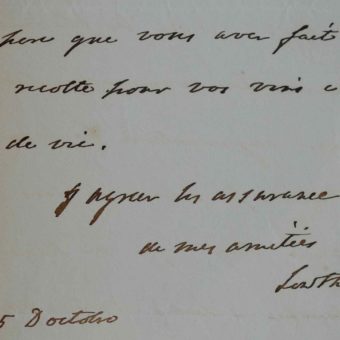 pere que vous avez fait
recolte pour vos vins e
de vie.
agréer les assurance
de mes amitiés
5 D octobre